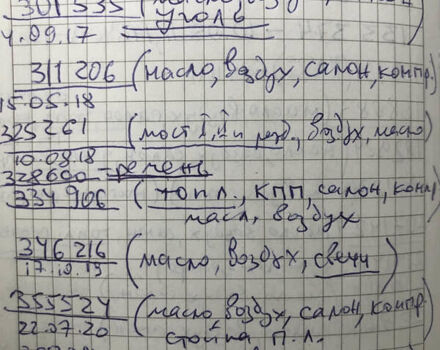 301535
уголь
4.09.17
311206 (масло, воздух, салон, компр.)
15.05.18
325261 (мост I, II и разд., воздух, масло)
10.08.18
328600 - ремень
334906 (топл., КПП, салон, комп)
масл, воздух
346216 (масло, воздух, свечи)
17.10.19
355524 (масло, воздух, салон, компр.
22.07.20 стойка П.Л.